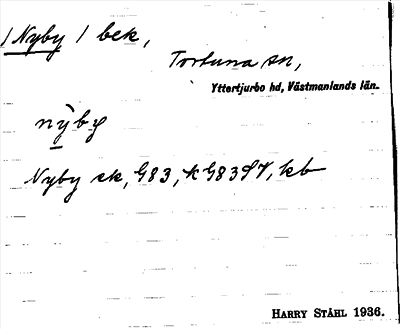 / Nyby / bek,
Tortuna sn,
Yttertjurbo hd, Västmanlands län.
nỳby
Nyby ek, G83, K G83 S7, kb
HARRY STÅHL 1936.